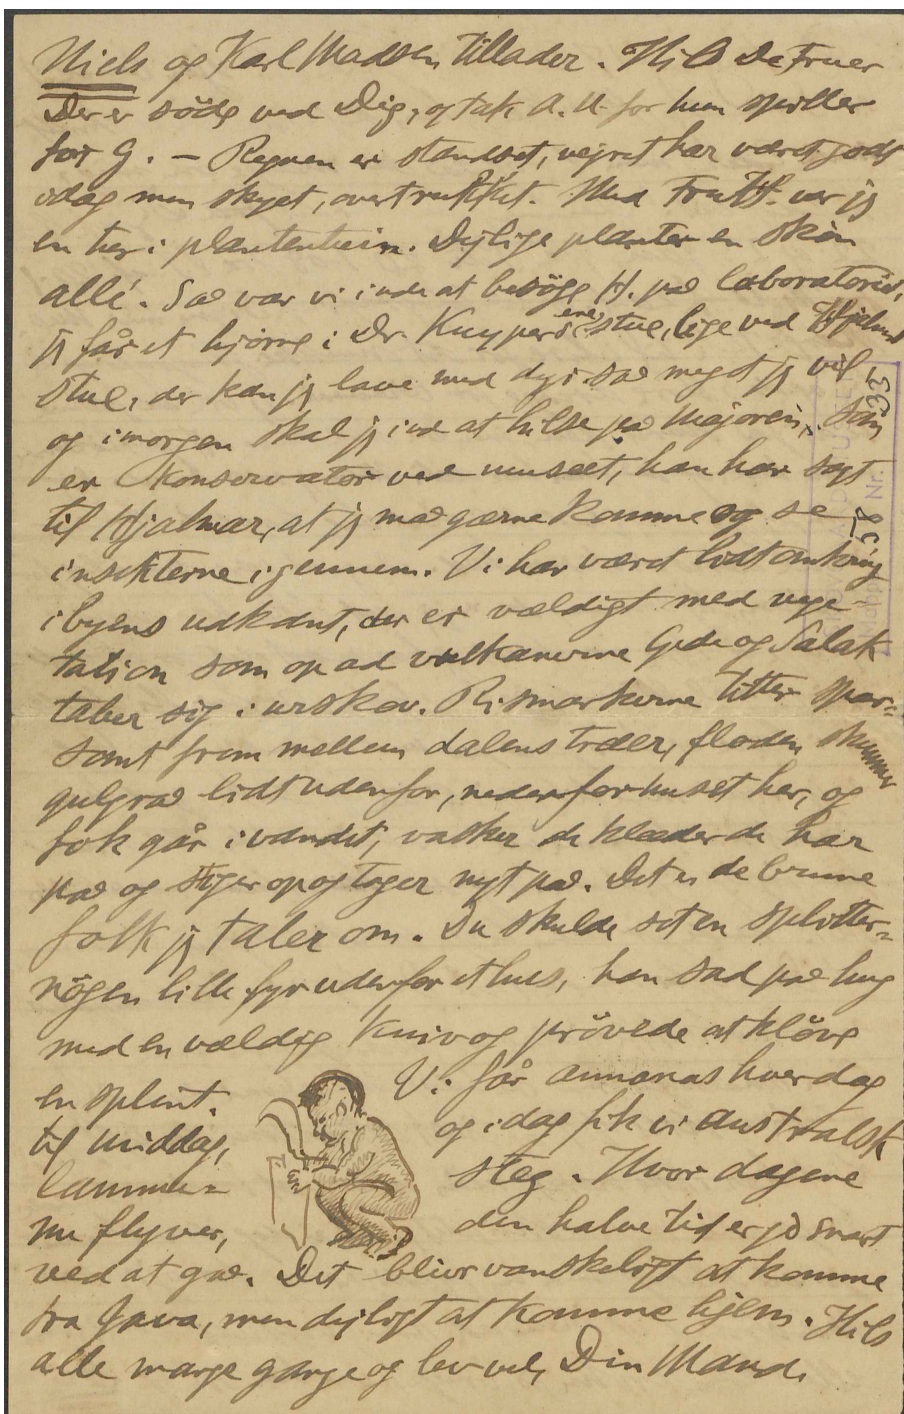 Niels og Karl Madsen tillader. Hils De Fruer
Der er søde ved Dig, og tak A. U. for hun spiller
for G. – Regnen er standset, vejret har været godt
idag men skyet, overtrukket. Med Fru H. var jeg
en tur i planteriet. Dejlige planter en skøn
allé. Saa var vi inde at besøge H. på laboratoriet,
jeg får et hjørne i Dr. Kuypers ene stue, lige ved Hjalmars
stue, der kan jeg lave med dyr saa meget jeg vil
og imorgen skal jeg ind at hilse paa Majoren, som
er Konservator ved museet, han har sagt
til Hjalmar, at jeg maa gærne komme og se
insekterne igennem. Vi har været lidt omkring
i byens udkant, der er vældigt med vege-
tation som op ad vulkanerne Gede og Salak
taber sig i urskov. Rismarkerne titter spar=
somt frem mellem dalens træer, floden skummer
gulgraa lidt udenfor, nedenfor huset her, og
folk går i vandet, vasker de klæder de har
paa og stiger op og tager nyt paa. Det er de brune
folk jeg taler om. Du skulde set en splitter=
nøgen lille fyr udenfor et hus, han sad paa hug
med en vældig Kniv og prøvede at kløve
en splint. Vi får ananas hver dag
til middag, og idag fik vi australsk
lamme= steg. Hvor dagene
nu flyver, den halve tid er jo snart
ved at gaa. Det bliver vanskeligt at komme
fra Java, men dejligt at komme hjem. Hils
alle mange gange og lev vel, Din Mand.
58 Nr. 33